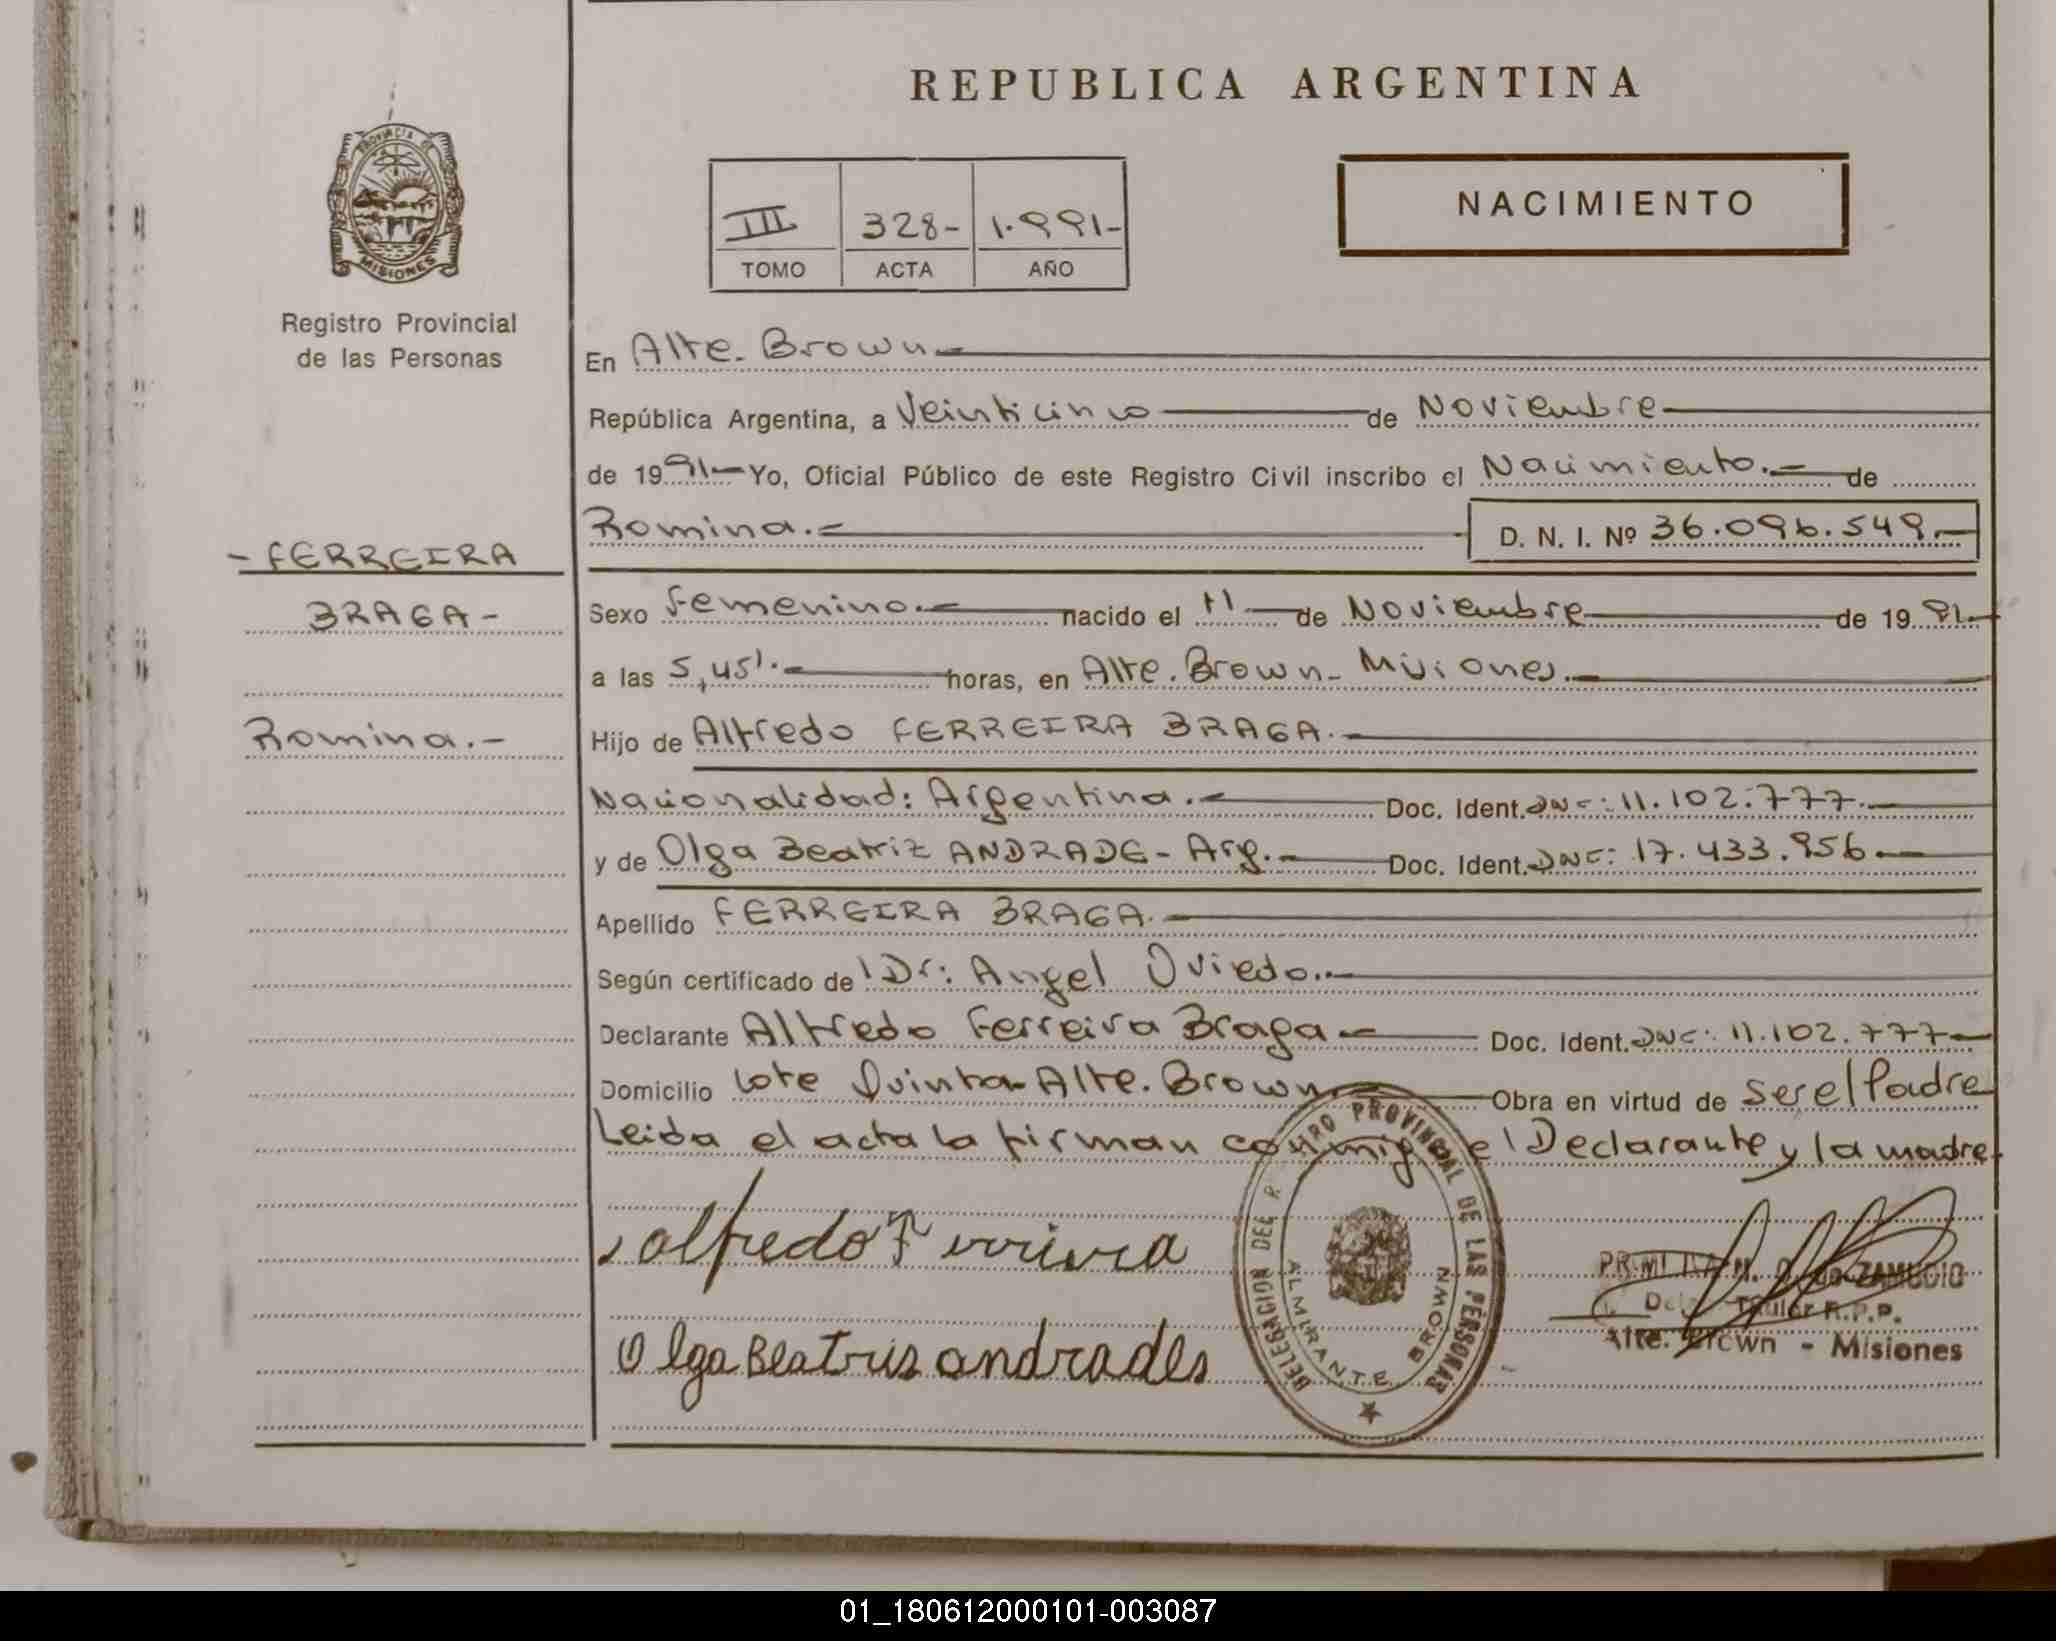 REPUBLICA ARGENTINA
PROVINCIA DE
MISIONES
Registro Provincial
de las Personas
III 328- 1.991-
TOMO ACTA AÑO
NACIMIENTO
En Alte. Brown
República Argentina, a Veinticinco de Noviembre
de 1991 Yo, Oficial Público de este Registro Civil inscribo el Nacimiento.- de
Romina.- D. N. I. Nº 36.096.549.-
- FERREIRA
BRAGA -
Romina.-
Sexo Femenino.- nacido el 11 de Noviembre de 1991.-
a las 5,45'.- horas, en Alte. Brown- Misiones.-
Hijo de Alfredo FERREIRA BRAGA.-
Nacionalidad: Argentina.- Doc. Ident. DNI: 11.102.777.-
y de Olga Beatriz ANDRADE- Arg.- Doc. Ident. DNI: 17.433.956.-
Apellido FERREIRA BRAGA.-
Según certificado de Dr: Angel Oviedo.-
Declarante Alfredo Ferreira Braga - Doc. Ident. DNI: 11.102.777-
Domicilio Lote Quinta- Alte. Brown.- Obra en virtud de ser el Padre
Leida el acta la firman conmigo el Declarante y la madre.
alfredo Ferrieira
Olga Beatris andrades
DELEGACION DEL REGISTRO PROVINCIAL DE LAS PERSONAS
ALMIRANTE BROWN
ZAMUDIO
Titular R.P.P.
Alte. Brown - Misiones
01_180612000101-003087